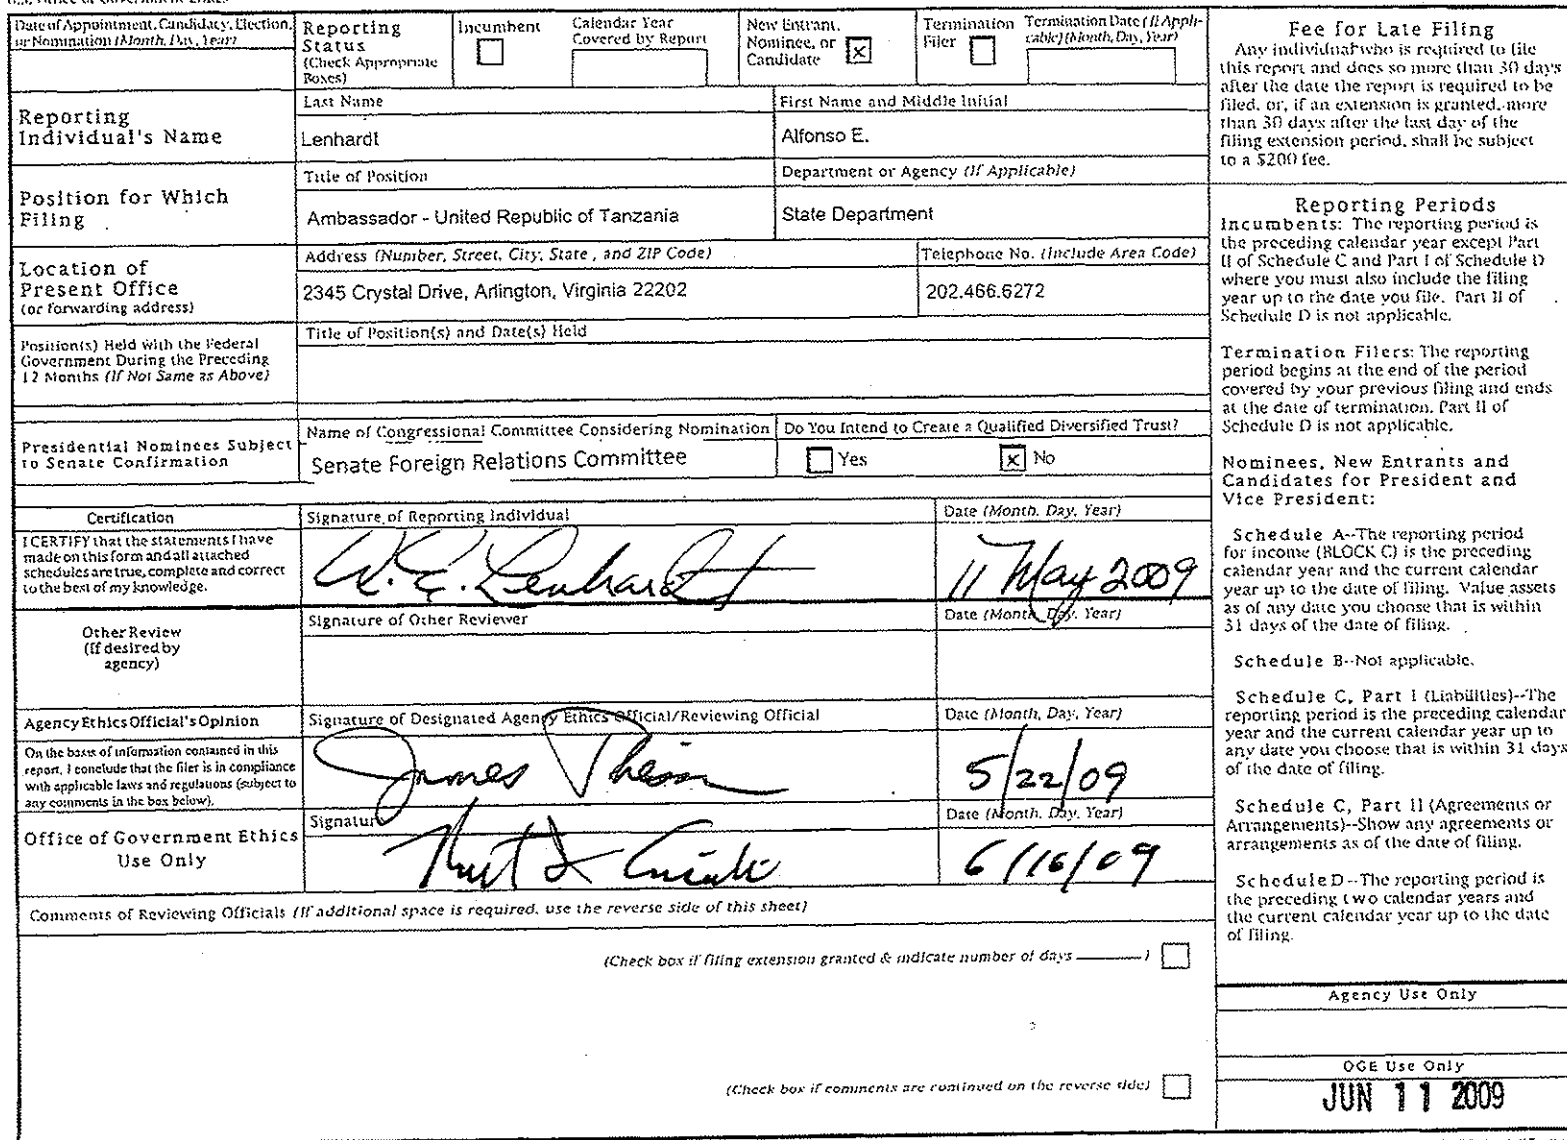 Date of Appointment, Candidacy, Election,
or Nomination (Month, Day, Year)
Reporting
Status
(Check Appropriate
Boxes)
Incumbent
Calendar Year
Covered by Report
New Entrant,
Nominee, or
Candidate
x
Termination
Filer
Termination Date (If Appli-
cable) (Month, Day, Year)
Reporting
Individual's Name
Last Name
Lenhardt
First Name and Middle Initial
Alfonso E.
Position for Which
Filing
Title of Position
Ambassador - United Republic of Tanzania
Department or Agency (If Applicable)
State Department
Location of
Present Office
(or forwarding address)
Address (Number, Street, City, State , and ZIP Code)
2345 Crystal Drive, Arlington, Virginia 22202
Telephone No. (Include Area Code)
202.466.6272
Position(s) Held with the Federal
Government During the Preceding
12 Months (If Not Same as Above)
Title of Position(s) and Date(s) Held
Presidential Nominees Subject
to Senate Confirmation
Name of Congressional Committee Considering Nomination
Senate Foreign Relations Committee
Do You Intend to Create a Qualified Diversified Trust?
Yes
x No
Certification
I CERTIFY that the statements I have
made on this form and all attached
schedules are true, complete and correct
to the best of my knowledge.
Signature of Reporting Individual
A. E. Lenhardt
Date (Month, Day, Year)
11 May 2009
Other Review
(If desired by
agency)
Signature of Other Reviewer
Date (Month, Day, Year)
Agency Ethics Official's Opinion
On the basis of information contained in this
report, I conclude that the filer is in compliance
with applicable laws and regulations (subject to
any comments in the box below).
Signature of Designated Agency Ethics Official/Reviewing Official
James
Date (Month, Day, Year)
5/22/09
Office of Government Ethics
Use Only
Signature
Date (Month, Day, Year)
6/16/09
Comments of Reviewing Officials (If additional space is required, use the reverse side of this sheet)
(Check box if filing extension granted & indicate number of days ______ )
(Check box if comments are continued on the reverse side)
Fee for Late Filing
Any individual who is required to file
this report and does so more than 30 days
after the date the report is required to be
filed, or, if an extension is granted, more
than 30 days after the last day of the
filing extension period, shall be subject
to a $200 fee.
Reporting Periods
Incumbents: The reporting period is
the preceding calendar year except Part
II of Schedule C and Part I of Schedule D
where you must also include the filing
year up to the date you file. Part II of
Schedule D is not applicable.
Termination Filers: The reporting
period begins at the end of the period
covered by your previous filing and ends
at the date of termination. Part II of
Schedule D is not applicable.
Nominees, New Entrants and
Candidates for President and
Vice President:
Schedule A--The reporting period
for income (BLOCK C) is the preceding
calendar year and the current calendar
year up to the date of filing. Value assets
as of any date you choose that is within
31 days of the date of filing.
Schedule B--Not applicable.
Schedule C, Part I (Liabilities)--The
reporting period is the preceding calendar
year and the current calendar year up to
any date you choose that is within 31 days
of the date of filing.
Schedule C, Part II (Agreements or
Arrangements)--Show any agreements or
arrangements as of the date of filing.
Schedule D--The reporting period is
the preceding two calendar years and
the current calendar year up to the date
of filing.
Agency Use Only
OGE Use Only
JUN 11 2009